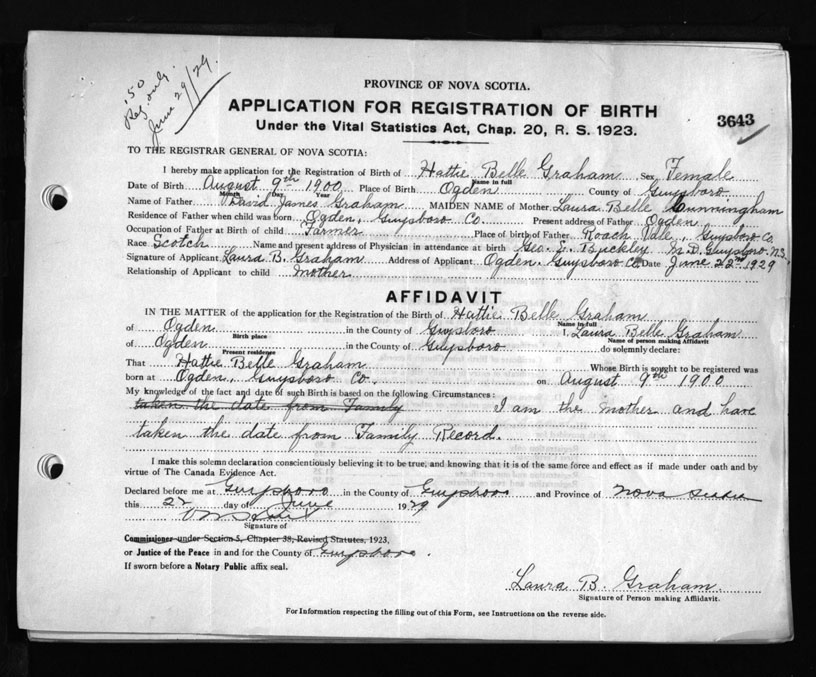 .50
Reg. only.
June 29/29
PROVINCE OF NOVA SCOTIA.
APPLICATION FOR REGISTRATION OF BIRTH
3643
Under the Vital Statistics Act, Chap. 20, R. S. 1923.
TO THE REGISTRAR GENERAL OF NOVA SCOTIA:
I hereby make application for the Registration of Birth of Hattie Belle Graham Sex Female
Name in full
Date of Birth August 9th 1900 Place of Birth Ogden County of Guysboro
Month Day Year
Name of Father David James Graham MAIDEN NAME of Mother Laura Belle Cunningham
Residence of Father when child was born Ogden, Guysboro Co. Present address of Father Ogden
Occupation of Father at Birth of child Farmer Place of birth of Father Roach Vale, Guysboro Co
Race Scotch Name and present address of Physician in attendance at birth Geo. E. Buckley M.D. Guysboro. N.S.
Signature of Applicant Laura B. Graham Address of Applicant Ogden, Guysboro Co. Date June 22nd 1929
Relationship of Applicant to child mother
AFFIDAVIT
IN THE MATTER of the application for the Registration of the Birth of Hattie Belle Graham
Name in full
of Ogden in the County of Guysboro I, Laura Belle Graham
Birth place
Name of person making Affidavit
of Ogden in the County of Guysboro do solemnly declare:
Present residence
That Hattie Belle Graham Whose Birth is sought to be registered was
born at Ogden, Guysboro Co. on August 9th 1900
My knowledge of the fact and date of such Birth is based on the following Circumstances:
taken the date from Family I am the mother and have
taken the date from Family Record.
I make this solemn declaration conscientiously believing it to be true, and knowing that it is of the same force and effect as if made under oath and by
virtue of The Canada Evidence Act.
Declared before me at Guysboro in the County of Guysboro and Province of Nova Scotia
this 22 day of June 1929
Signature of
Commissioner under Section 5, Chapter 38, Revised Statutes, 1923,
or Justice of the Peace in and for the County of Guysboro.
If sworn before a Notary Public affix seal.
Laura B. Graham
Signature of Person making Affidavit.
For Information respecting the filling out of this Form, see Instructions on the reverse side.